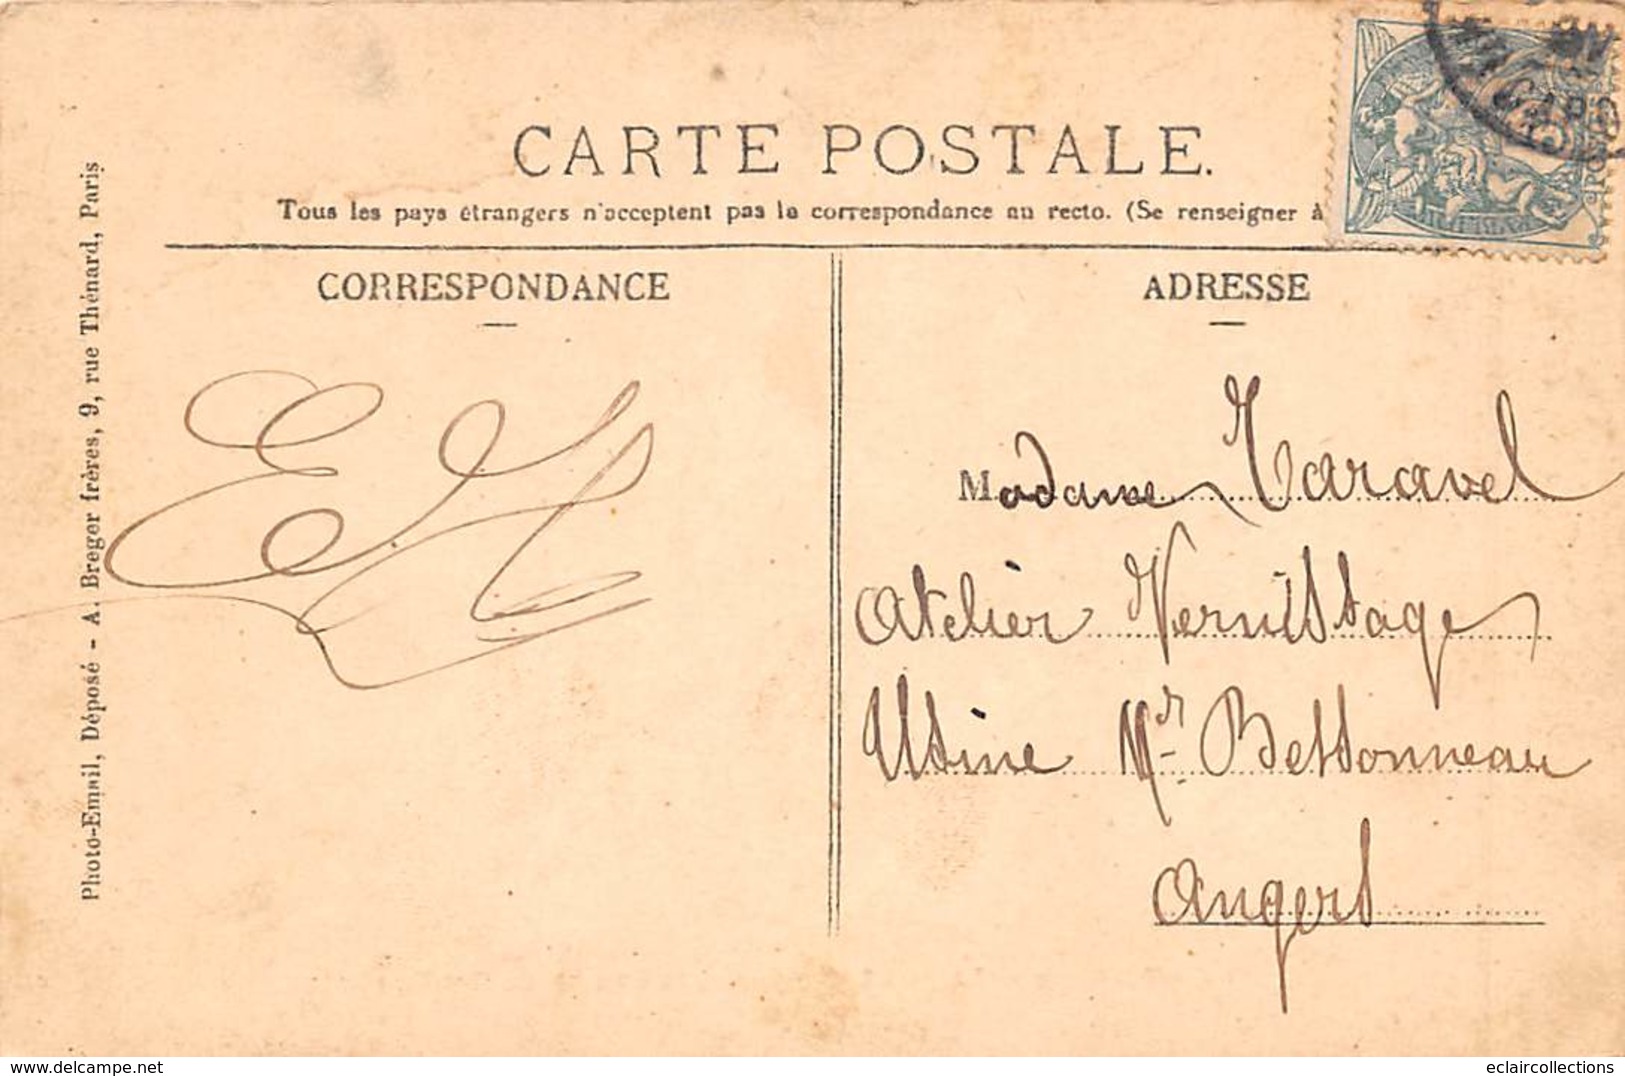 CARTE POSTALE.
Tous les pays étrangers n'acceptent pas la correspondance au recto. (Se renseigner à
CORRESPONDANCE
ADRESSE
Madame Taravel
Atelier Vernissage
Usine Mr Bessonneau
Angers
Photo-Email, Déposé - A. Breger frères, 9, rue Thénard, Paris
delcampe.net
eclaircollections